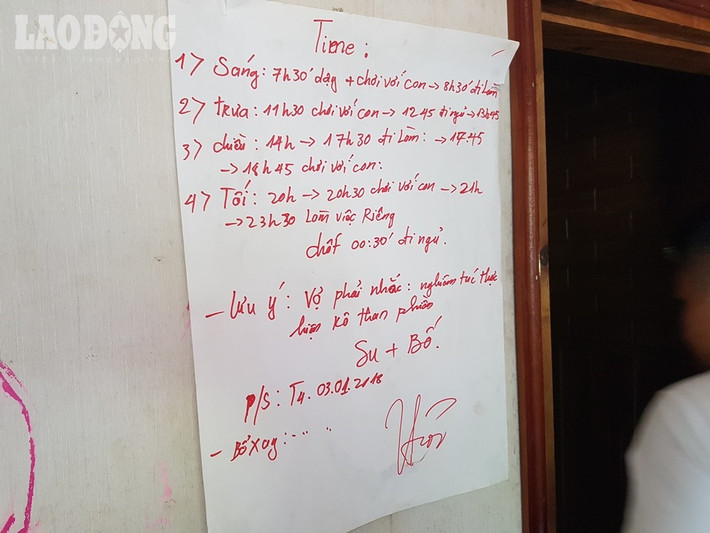 LAO ĐỘNG
Time:
1> Sáng: 7h30' dậy + chơi với con → 8h30' đi làm
2> trưa: 11h30 chơi với con → 1245 đi ngủ → 13h45
3> chiều: 14h → 17h30 đi làm: → 17.45
→ 18h45 chơi với con:
4> Tối: 20h → 20h30 chơi với con → 21h
→ 23h30 Làm việc Riêng
chốt 00:30' đi ngủ.
- Lưu ý: Vợ phải nhắc: nghiêm túc thực
hiện kô than phiền
Su + Bố.
P/S: T4. 03.01.2018